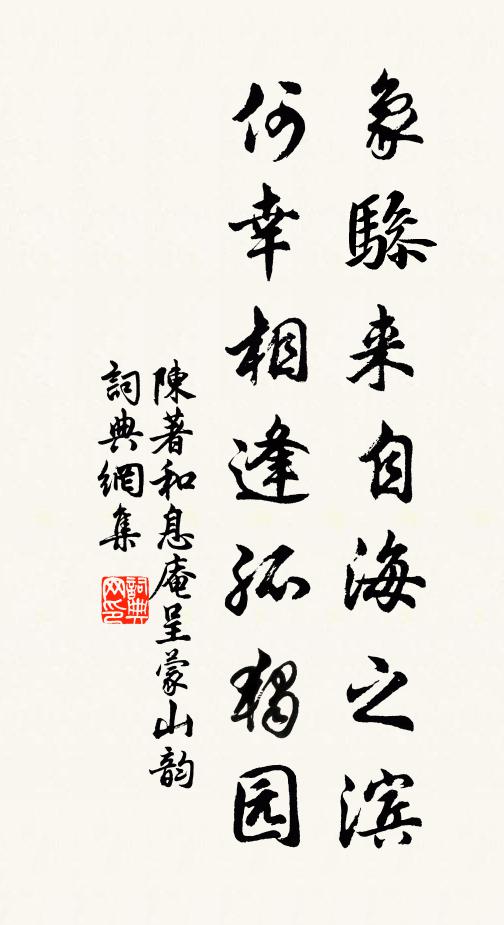 象驂来自海之滨
何幸相逢孤独园
陳著和息庵呈蒙山韵
詞典網集
詞典网印